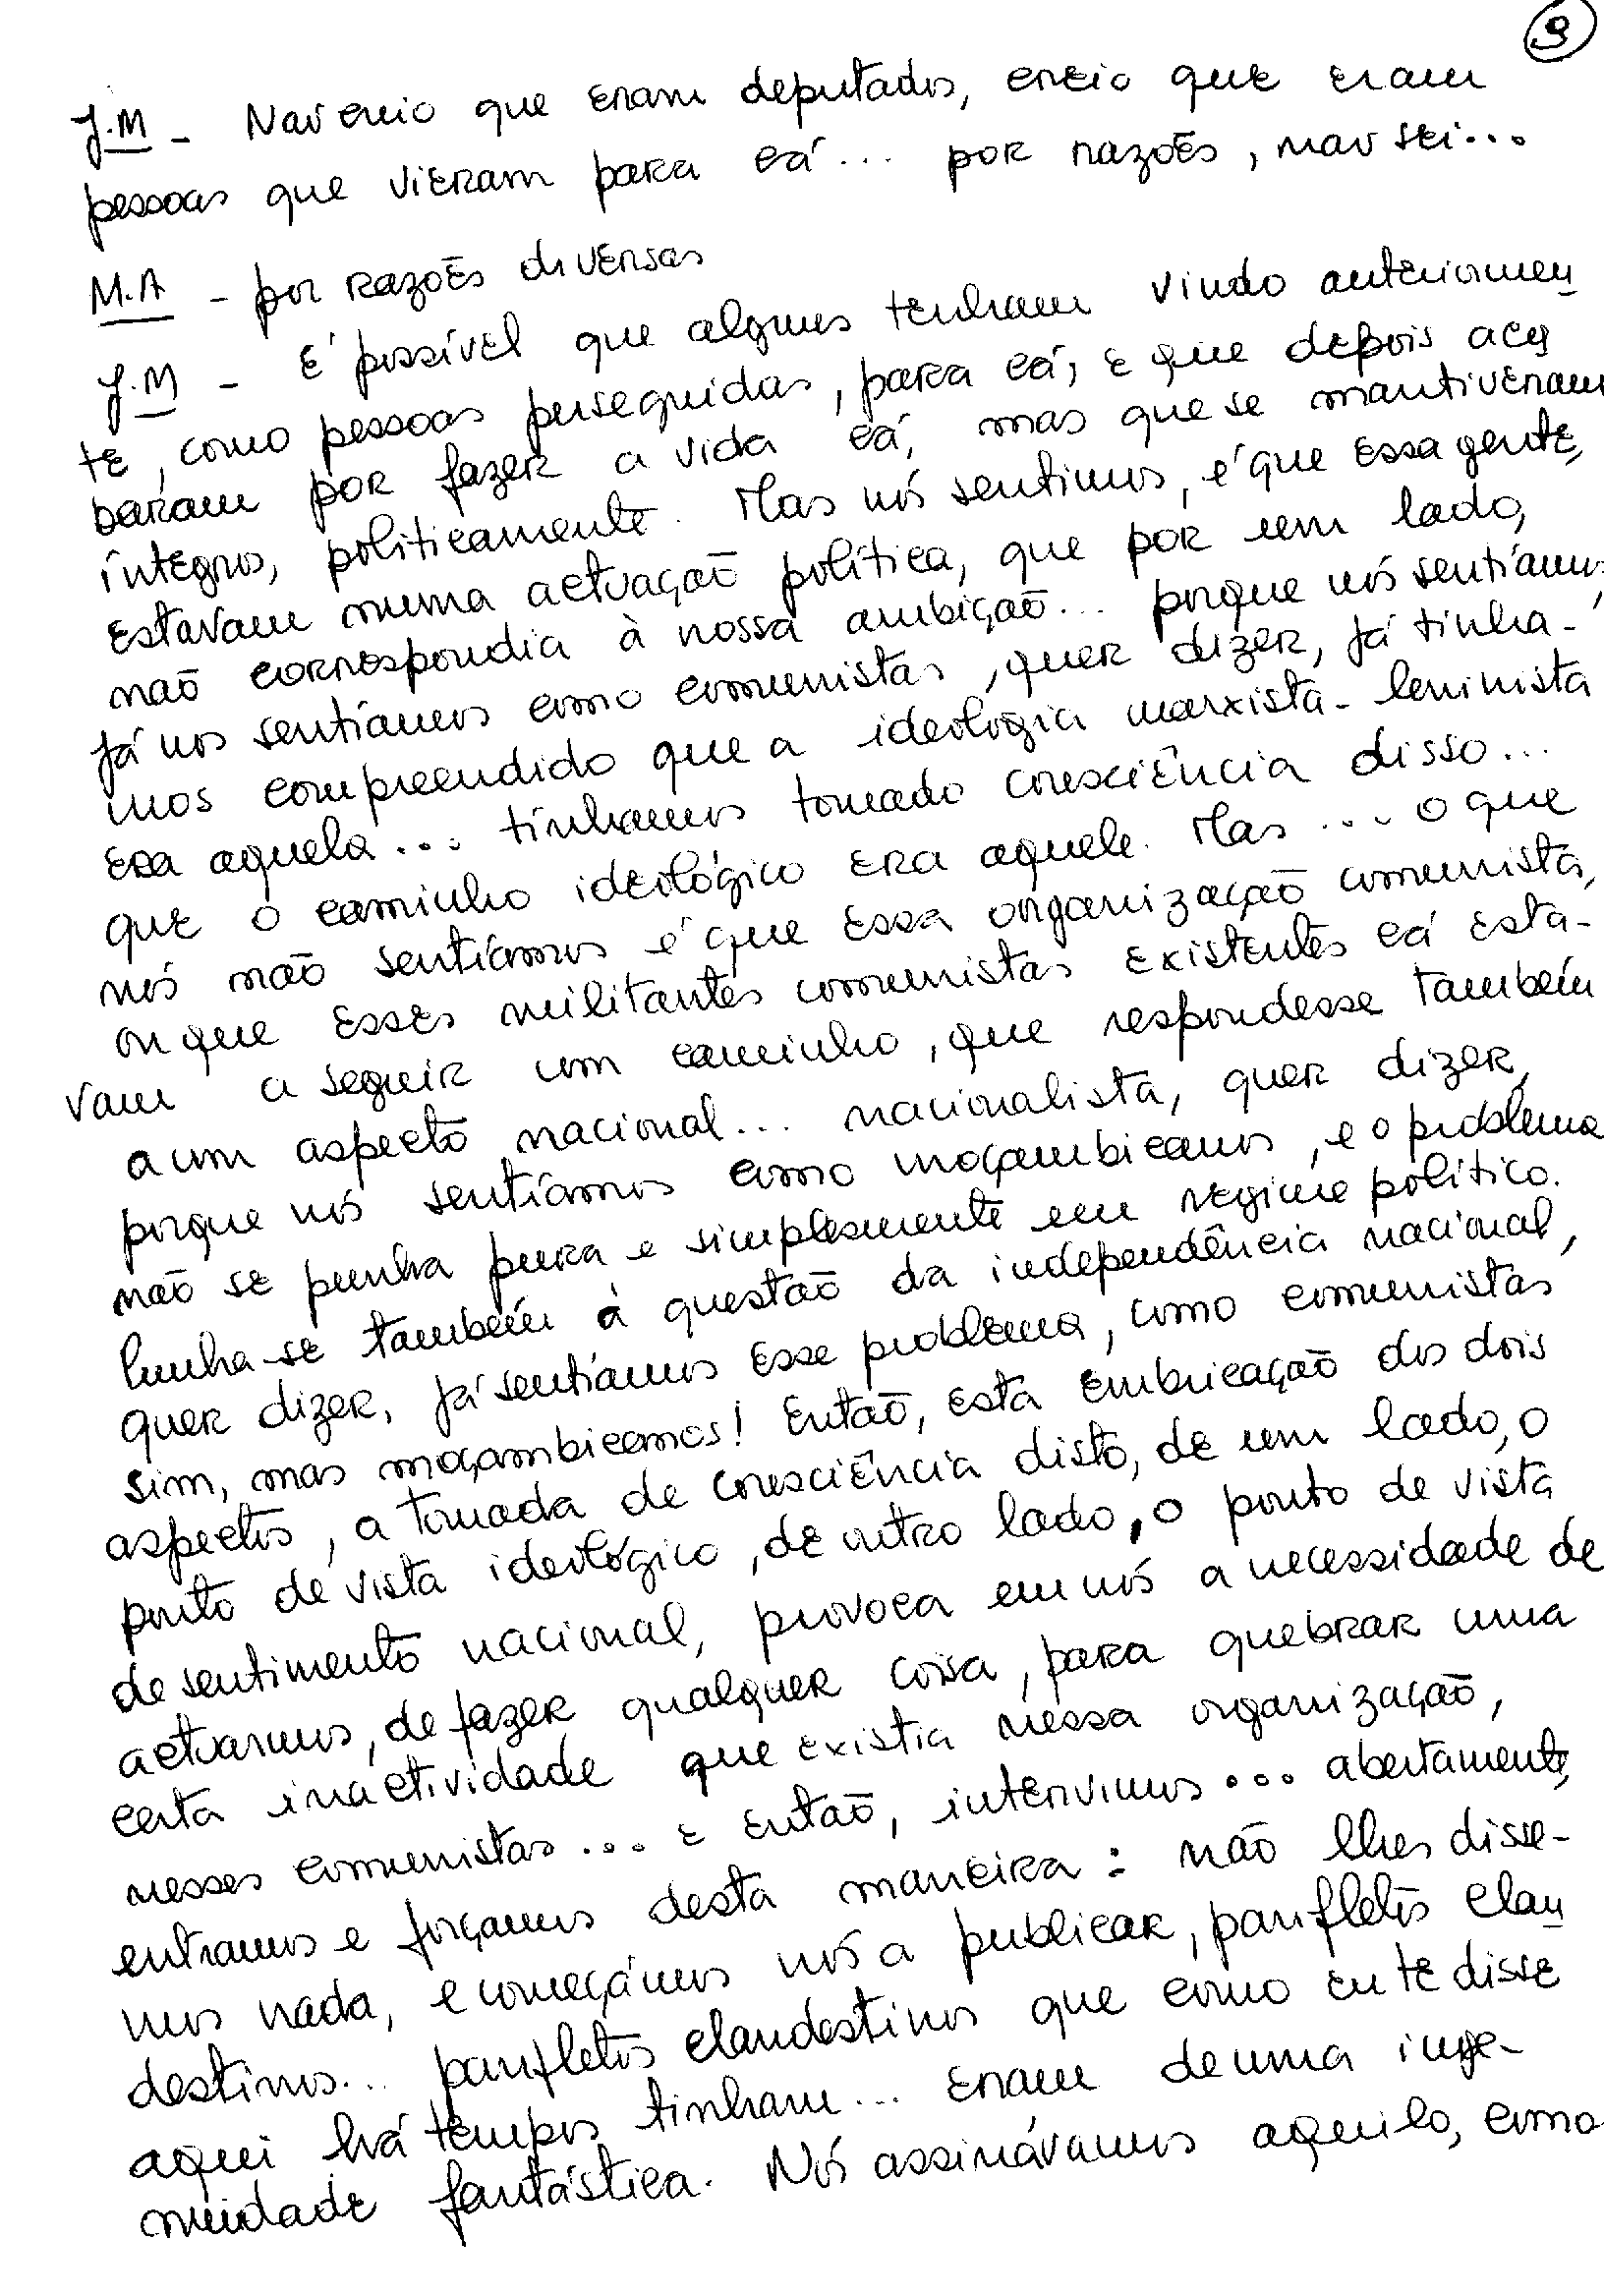 9
J.M - Não creio que eram deputados, creio que eram
pessoas que vieram para cá... por razões, não sei...
M.A - por razões diversas
J.M - É possível que alguns tenham vindo anteriormen
te, como pessoas perseguidas, para cá, e que depois aca
baram por fazer a vida cá, mas que se mantiveram
íntegros, politicamente. Mas nós sentimos, é que essa gente,
estavam numa actuação política, que por um lado,
não correspondia à nossa ambição... porque nós sentíamos,
já nos sentíamos como comunistas, quer dizer, já tinha-
mos compreendido que a ideologia marxista-leninista
era aquela... tínhamos tomado consciência disso...
que o caminho ideológico era aquele. Mas... o que
nós não sentíamos é que essa organização comunista,
ou que esses militantes comunistas existentes cá esta-
vam a seguir um caminho, que respondesse também
a um aspecto nacional... nacionalista, quer dizer,
porque nós sentíamos como moçambicanos, e o problema
não se punha pura e simplesmente em regime político.
Punha-se também à questão da independência nacional,
quer dizer, já sentíamos esse problema, como comunistas
sim, mas moçambicanos! Então, esta embricação dos dois
aspectos, a tomada de consciência disto, de um lado, o
ponto de vista ideológico, de outro lado, o ponto de vista
de sentimento nacional, provoca em nós a necessidade de
actuarmos, de fazer qualquer coisa, para quebrar uma
certa inactividade que existia nessa organização,
nesses comunistas... e então, intervimos... abertamente,
entramos e forçamos desta maneira: não lhes disse-
mos nada, e começámos nós a publicar, panfletos clan
destinos... panfletos clandestinos que como eu te disse
aqui há tempos tinham... eram de uma inge-
nuidade fantástica. Nós assinávamos aquilo, como